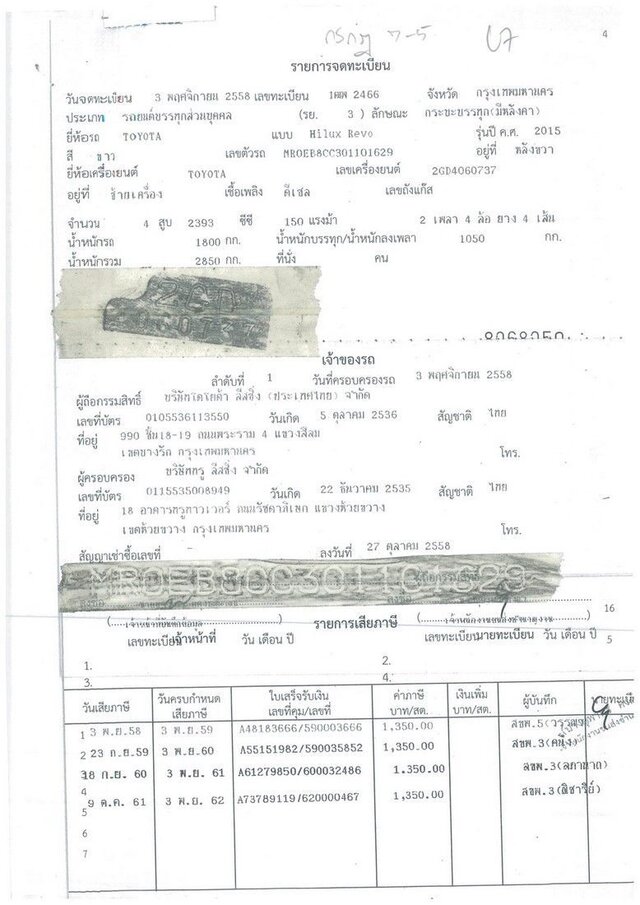 4
รายการจดทะเบียน
วันจดทะเบียน 3 พฤศจิกายน 2558 เลขทะเบียน 2466 จังหวัด กรุงเทพมหานคร
ประเภท รถยนต์บรรทุกส่วนบุคคล (รย. 3 ) ลักษณะ กระบะบรรทุก(มีหลังคา)
ยี่ห้อรถ TOYOTA แบบ Hilux Revo รุ่นปี ค.ศ. 2015
สี ขาว เลขตัวรถ MROEB8CC301101629 อยู่ที่ หลังขวา
ยี่ห้อเครื่องยนต์ TOYOTA เลขเครื่องยนต์ 2GD4060737
อยู่ที่ ซ้ายเครื่อง เชื้อเพลิง ดีเซล เลขถังแก๊ส
จำนวน 4 สูบ 2393 ซีซี 150 แรงม้า 2 เพลา 4 ล้อ ยาง 4 เส้น
น้ำหนักรถ 1800 กก. น้ำหนักบรรทุก/น้ำหนักลงเพลา 1050 กก.
น้ำหนักรวม 2850 กก. ที่นั่ง คน
เจ้าของรถ
ลำดับที่ 1 วันที่ครอบครองรถ 3 พฤศจิกายน 2558
ผู้ถือกรรมสิทธิ์ บริษัทโตโยต้า ลีสซิ่ง (ประเทศไทย) จำกัด
เลขที่บัตร 0105536113550 วันเกิด 5 ตุลาคม 2536 สัญชาติ ไทย
ที่อยู่ 990 ชั้น18-19 ถนนพระราม 4 แขวงสีลม
เขตบางรัก กรุงเทพมหานคร โทร.
ผู้ครอบครอง บริษัททรู ลีสซิ่ง จำกัด
เลขที่บัตร 0115535008949 วันเกิด 22 ธันวาคม 2535 สัญชาติ ไทย
ที่อยู่ 18 อาคารทรูทาวเวอร์ ถนนรัชดาภิเษก แขวงห้วยขวาง
เขตห้วยขวาง กรุงเทพมหานคร โทร.
สัญญาเช่าซื้อเลขที่ ลงวันที่ 27 ตุลาคม 2558
MROEB8CC301101629
ผู้ถือกรรมสิทธิ์
16
รายการเสียภาษี
เลขทะเบียน เจ้าหน้าที่ วัน เดือน ปี เลขทะเบียน นายทะเบียน วัน เดือน ปี 5
1. 2.
3. 4.
วันเสียภาษี วันครบกำหนดเสียภาษี ใบเสร็จรับเงิน เล่มที่คุม/เลขที่ ค่าภาษี บาท/สต. เงินเพิ่ม บาท/สต. ผู้บันทึก นายทะเบี
1 3 พ.ย.58 3 พ.ย.59 A48183666/590003666 1,350.00
2 23 ก.ย.59 3 พ.ย.60 A55151982/590035852 1,350.00
3 18 ก.ย. 60 3 พ.ย. 61 A61279850/600032486 1.350.00
4
9 ต.ค. 61 3 พ.ย. 62 A73789119/620000467 1,350.00
5
6
7